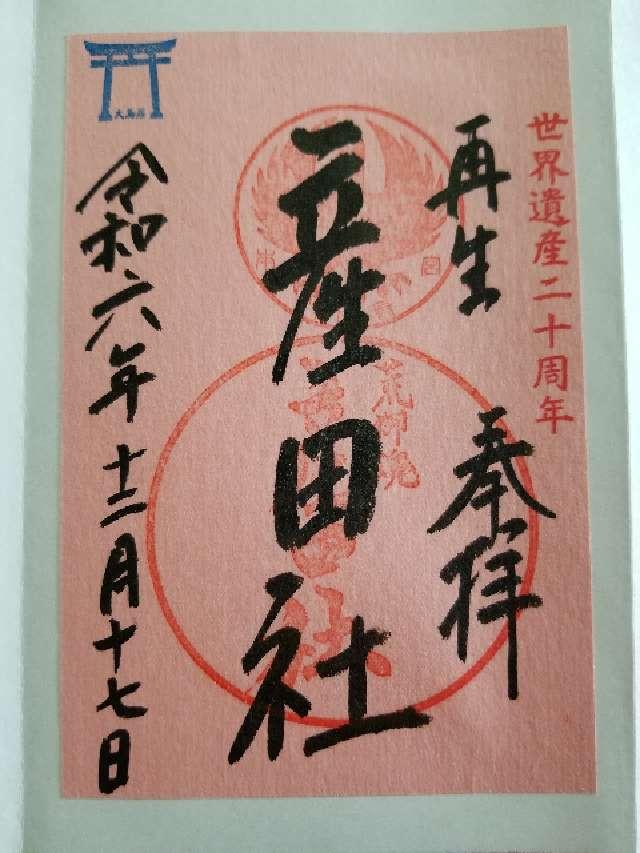 世界遺産二十周年
再生 奉拝
荒御魂
産田社
令和六年十二月十七日
大鳥居